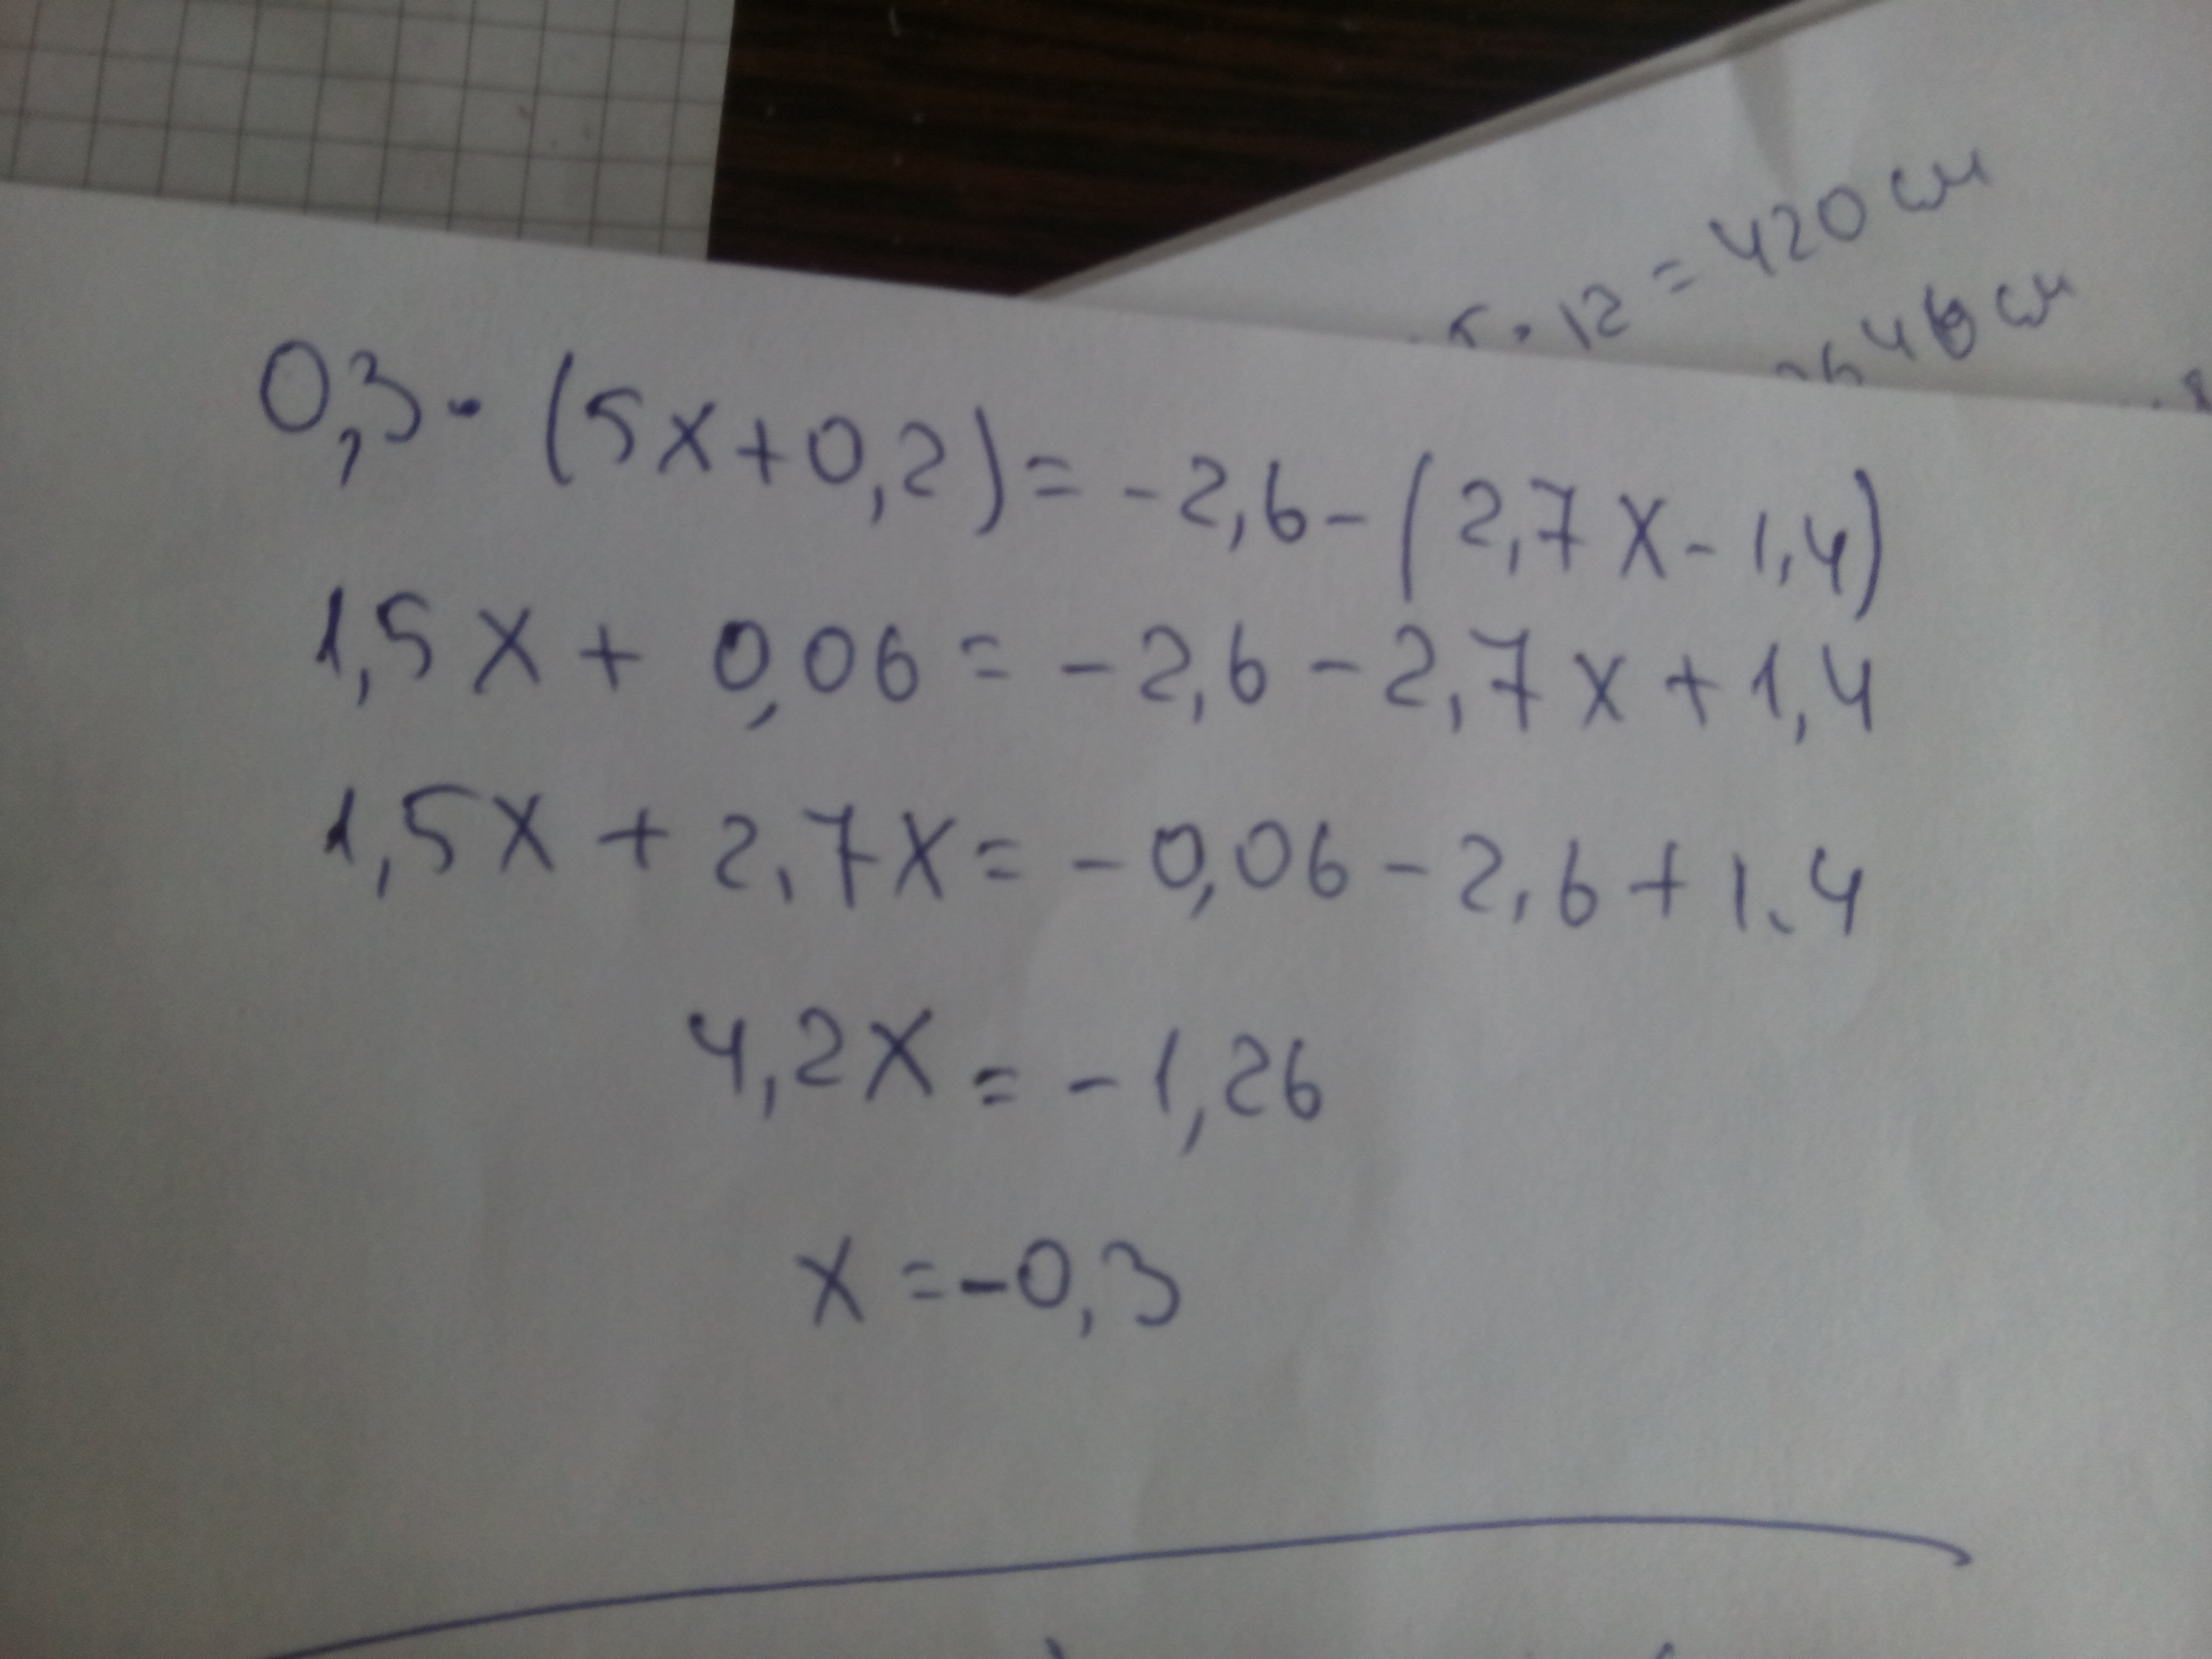 · 12 = 420 см
40 см
0,3 · (5x+0,2) = -2,6 - (2,7x - 1,4)
1,5x + 0,06 = -2,6 - 2,7x + 1,4
1,5x + 2,7x = -0,06 - 2,6 + 1,4
4,2x = -1,26
x = -0,3